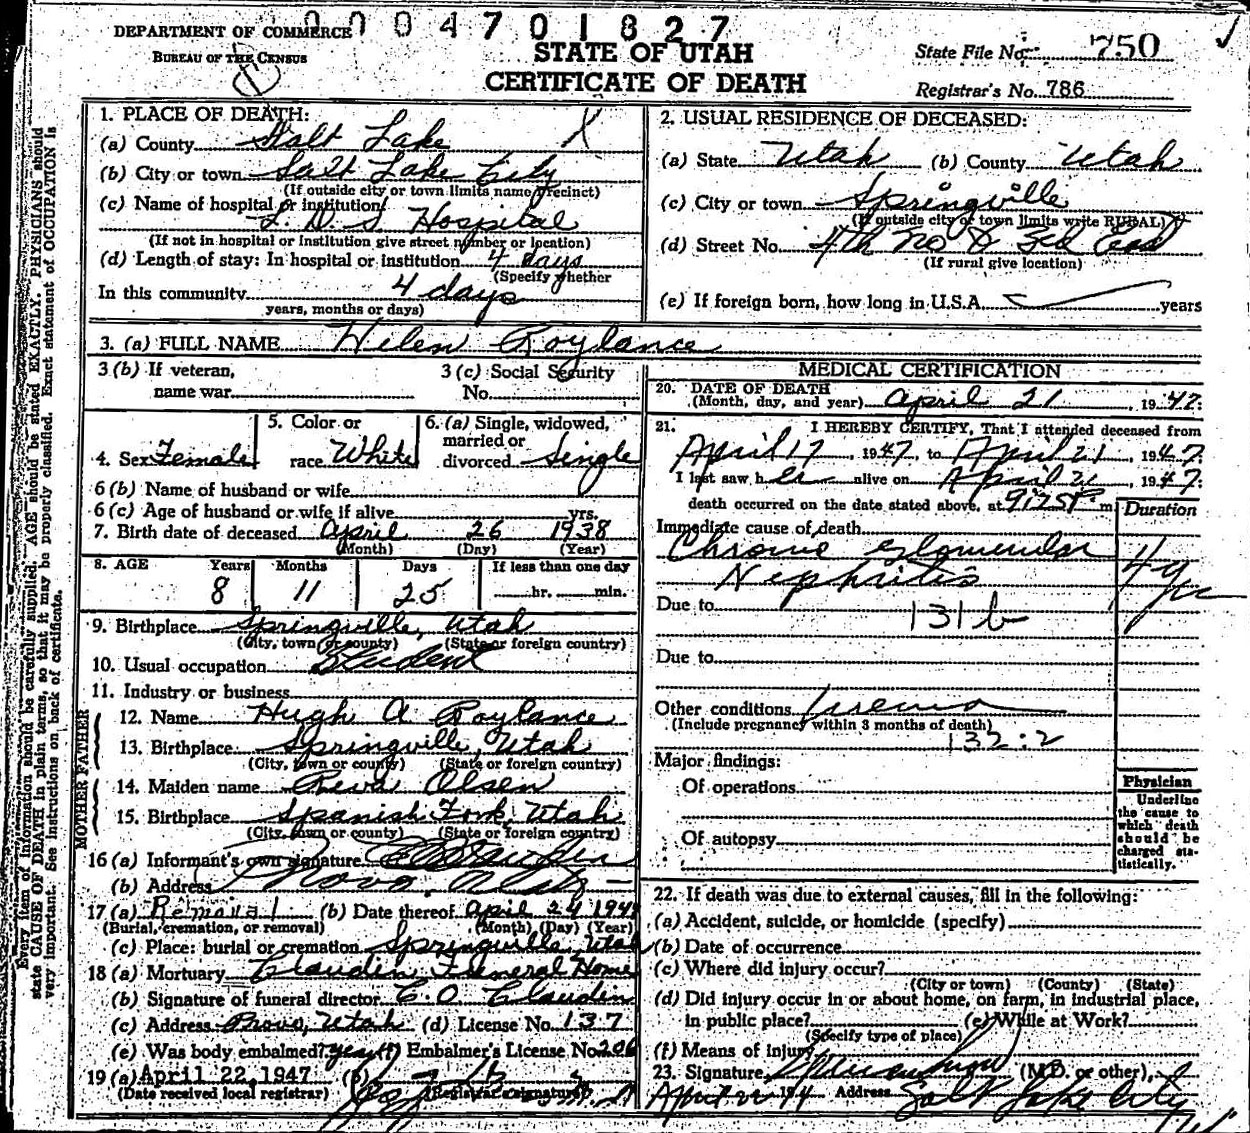 0004701827
DEPARTMENT OF COMMERCE
BUREAU OF THE CENSUS
STATE OF UTAH
CERTIFICATE OF DEATH
State File No. 750
Registrar's No. 786
1. PLACE OF DEATH:
(a) County Salt Lake
(b) City or town Salt Lake City
(If outside city or town limits name precinct)
(c) Name of hospital or institution
L. D. S. Hospital
(If not in hospital or institution give street number or location)
(d) Length of stay: In hospital or institution 4 days
(Specify whether
In this community 4 days
years, months or days)
2. USUAL RESIDENCE OF DECEASED:
(a) State Utah (b) County Utah
(c) City or town Springville
(If outside city or town limits write RURAL)
(d) Street No. 4th No & 3rd East
(If rural give location)
(e) If foreign born, how long in U.S.A. years
3. (a) FULL NAME Helen Roylance
3 (b) If veteran,
name war
3 (c) Social Security
No.
4. Sex Female
5. Color or
race White
6. (a) Single, widowed,
married or
divorced Single
6 (b) Name of husband or wife
6 (c) Age of husband or wife if alive yrs.
7. Birth date of deceased April 26 1938
(Month) (Day) (Year)
8. AGE Years Months Days If less than one day
8 11 25 hr. min.
9. Birthplace Springville, Utah
(City, town or county) (State or foreign country)
10. Usual occupation Student
11. Industry or business
FATHER
12. Name Hugh A Roylance
13. Birthplace Springville, Utah
(City, town or county) (State or foreign country)
MOTHER
14. Maiden name Reva Olsen
15. Birthplace Spanish Fork, Utah
(City, town or county) (State or foreign country)
16 (a) Informant's own signature
(b) Address Provo, Utah
17 (a) Removal (b) Date thereof April 24 194
(Burial, cremation, or removal) (Month) (Day) (Year)
(c) Place: burial or cremation Springville, Utah
18 (a) Mortuary Claudin Funeral Home
(b) Signature of funeral director C. O. Claudin
(c) Address Provo, Utah (d) License No. 137
(e) Was body embalmed? yes (f) Embalmer's License No. 206
19 (a) April 22, 1947 (b)
(Date received local registrar) (Registrar's signature)
MEDICAL CERTIFICATION
20. DATE OF DEATH
(Month, day, and year) April 21, 1947
21. I HEREBY CERTIFY, That I attended deceased from
April 17, 1947, to April 21, 1947
I last saw her alive on April 21, 1947
death occurred on the date stated above, at 9:25 P m.
Duration
Immediate cause of death
Chronic Glomerular
Nephritis
4 yr
Due to 131b
Due to
Other conditions Uremia
(Include pregnancy within 3 months of death)
132:2
Major findings:
Of operations
Of autopsy
Physician
Underline
the cause to
which death
should be
charged sta-
tistically.
22. If death was due to external causes, fill in the following:
(a) Accident, suicide, or homicide (specify)
(b) Date of occurrence
(c) Where did injury occur?
(City or town) (County) (State)
(d) Did injury occur in or about home, on farm, in industrial place,
in public place? (e) While at Work?
(Specify type of place)
(f) Means of injury
23. Signature (M.D. or other)
April 22 194 Address Salt Lake City
Every item of information should be carefully supplied. AGE should be stated EXACTLY. PHYSICIANS should
state CAUSE OF DEATH in plain terms, so that it may be properly classified. Exact statement of OCCUPATION is
very important. See instructions on back of certificate.